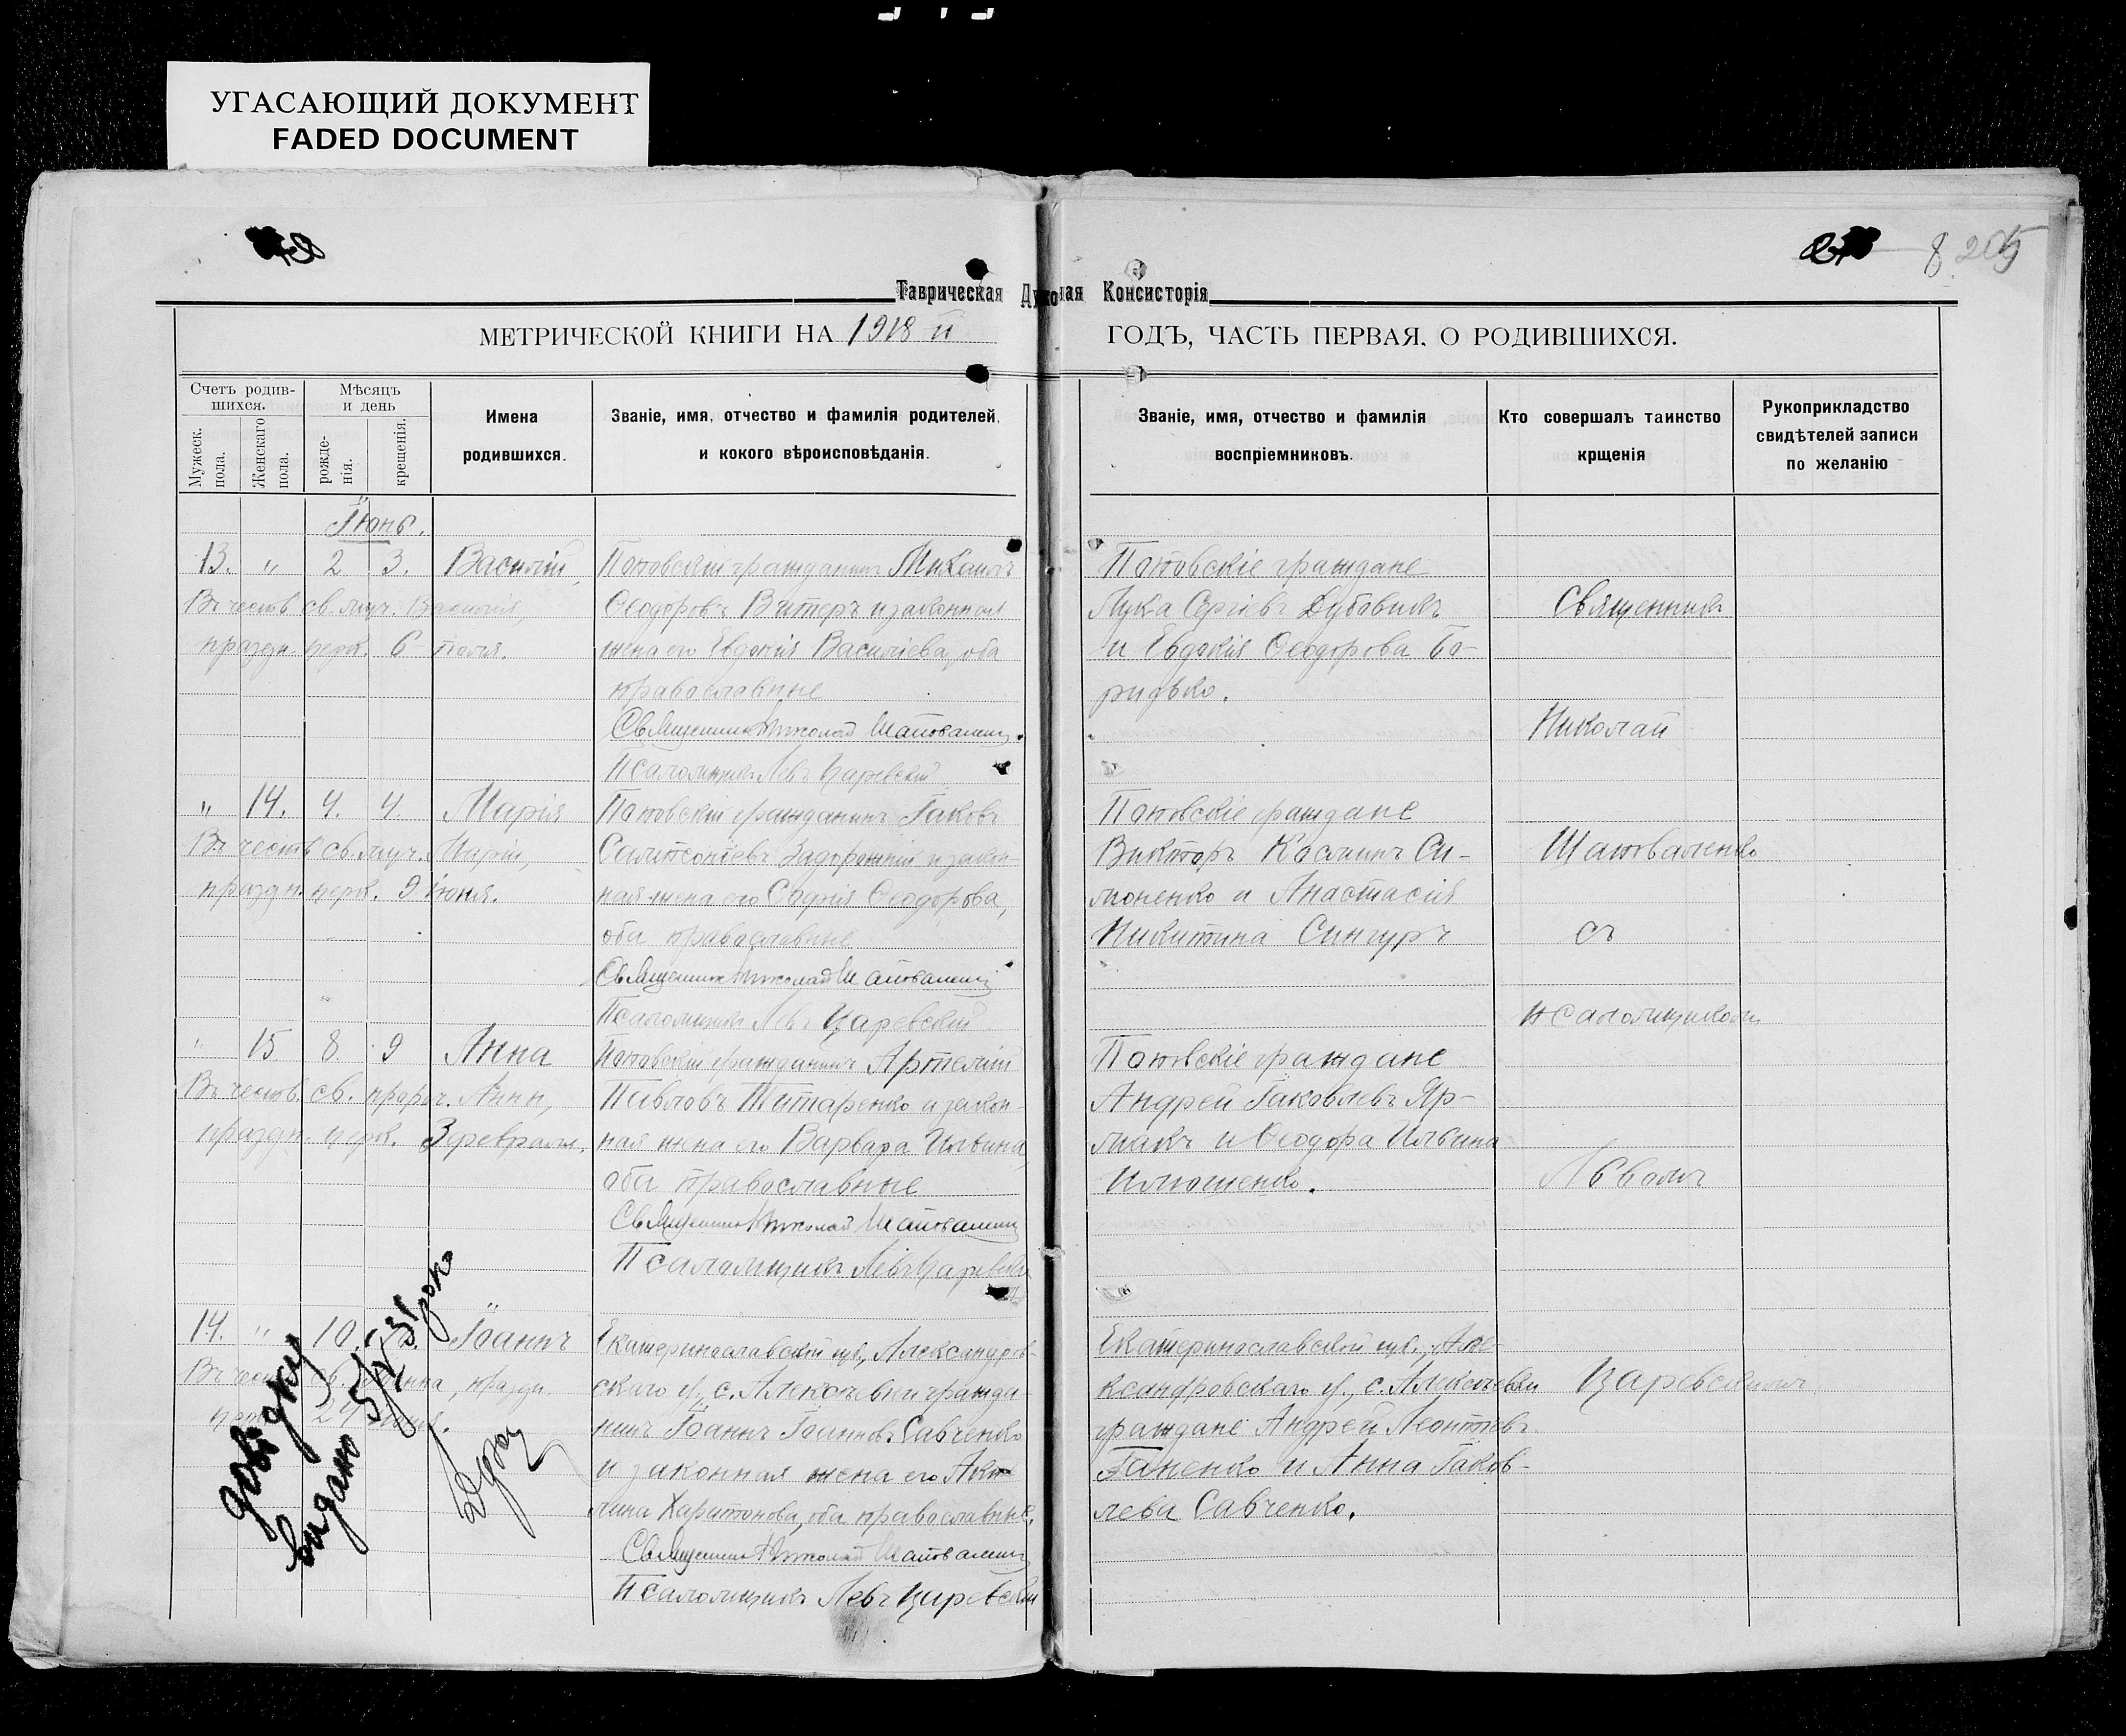 УГАСАЮЩИЙ ДОКУМЕНТ
FADED DOCUMENT
8 205
Таврическая Духовная Консисторія
МЕТРИЧЕСКОЙ КНИГИ НА 1918 й
ГОДЪ, ЧАСТЬ ПЕРВАЯ, О РОДИВШИХСЯ.
Счетъ родив-
шихся.
Мужеск. пола.
Женскаго пола.
Мѣсяцъ
и день
рожде-
нія.
крещенія.
Имена
родившихся.
Званіе, имя, отчество и фамилія родителей,
и кокого вѣроисповѣданія.
Званіе, имя, отчество и фамилія
воспріемниковъ.
Кто совершалъ таинство
крщенія
Рукоприкладство
свидѣтелей записи
по желанію
Іюнь.
13. " 2 3. Василій
Въ честь св. муч. Василія,
праздн. церк. 6 іюля.
Поповскій гражданинъ Михаилъ
Ѳеодоровъ Вѣтеръ и законная
жена его Евдокія Василіева, оба
православные
Священникъ Николай Шаповаленко.
Псаломщикъ Левъ Царевскій
Поповскіе граждане
Лука Сергіевъ Дубовикъ
и Евдокія Ѳеодорова Бо-
ридько.
" 14. 4. 4. Марія
Въ честь св. муч. Маріи,
праздн. церк. 9 іюня.
Поповскій гражданинъ Іаковъ
Сампсоніевъ Задорожній и закон-
ная жена его Софія Ѳеодорова,
оба православные
Священникъ Николай Шаповаленко
Псаломщикъ Левъ Царевскій
Поповскіе граждане
Викторъ Косминъ Си-
моненко и Анастасія
Никитина Сингуръ
" 15 8. 9 Анна
Въ честь св. прор. Анны,
праздн. церк. 3 февраля.
Поповскій гражданинъ Артемій
Павловъ Титаренко и закон-
ная жена его Варвара Ильина,
оба православные
Священникъ Николай Шаповаленко
Псаломщикъ Левъ Царевскій
Поповскіе граждане
Андрей Іаковлевъ Яр-
макъ и Ѳеодора Ильина
Ильюшенко.
14. " 10. Іоаннъ
Въ честь св. Іоанна, праздн.
церк. 24 іюня.
Екатеринославской губ., Александров-
скаго у., с. Алексѣевки гражда-
нинъ Іоаннъ Іоанновъ Савченко
и законная жена его Аки-
лина Харитонова, оба православные.
Священникъ Николай Шаповаленко
Псаломщикъ Левъ Царевскій
Екатеринославской губ., Але-
ксандровскаго у., с. Алексѣевки
граждане Андрей Леонтіевъ
Ганенко и Анна Іаков-
лева Савченко.
Священникъ
Николай
Шаповаленко
съ
псаломщикомъ
Львомъ
Царевскимъ
довідку
видано 5/V 31 року